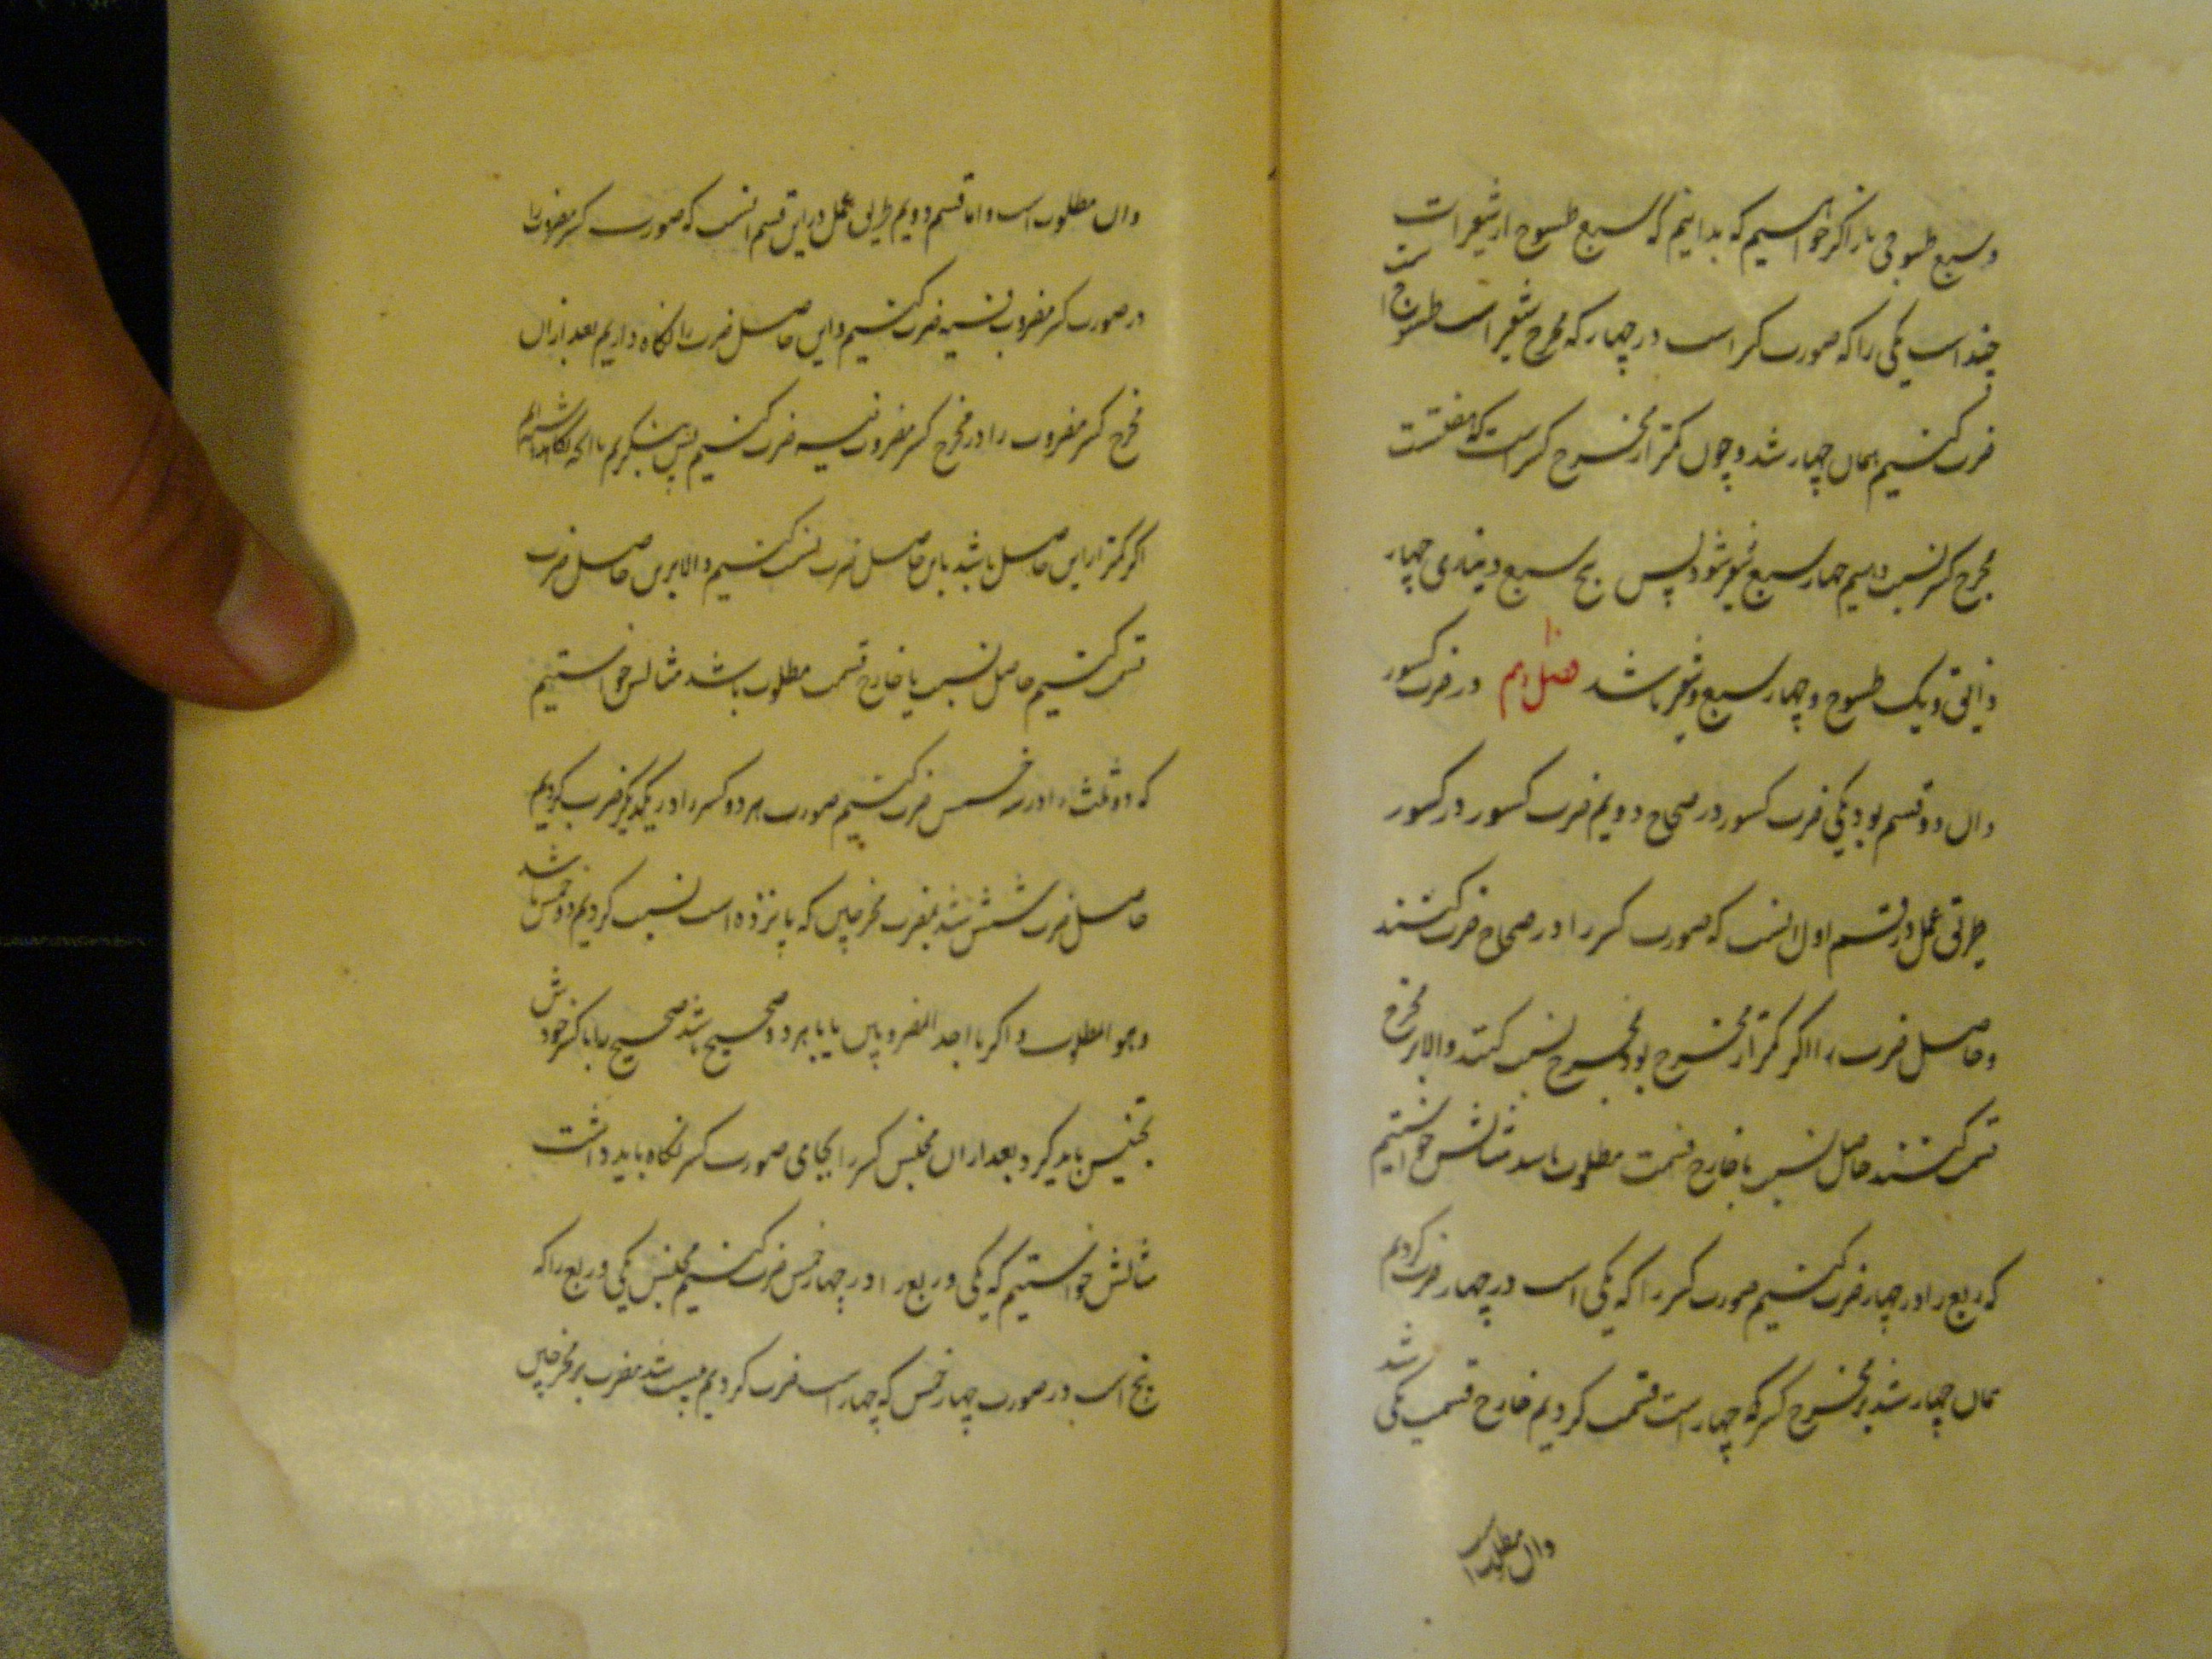 و سبع طسوجی باز اگر خواهیم که بدانیم که سبع طسوج از شعیرات
چند است یکی را که صورت کسر است در چهار که مخرج شعیر است طسوج است
ضرب کنیم همان چهار شد و چون کمتر از مخرج کسر است که هفتست
بمخرج کسر نسبت دهیم چهار سبع شعیر شود پس پنج سبع دیناری چهار
دانق و یک طسوج و چهار سبع شعیر باشد فصل دهم در ضرب کسور
و ان دو قسم بود یکی ضرب کسور در صحاح دویم ضرب کسور در کسور
طریق عمل در قسم اول انست که صورت کسر را در صحاح ضرب کنند
و حاصل ضرب را اگر کمتر از مخرج بود بمخرج نسبت کنند و الا بر مخرج
قسمت کنند حاصل نسبت یا خارج قسمت مطلوب باشد مثالش خواستیم
که ربع را در چهار ضرب کنیم صورت کسر را که یکی است در چهار ضرب کردیم
همان چهار شد بر مخرج کسر که چهار است قسمت کردیم خارج قسمت یکی شد
و ان مطلوبست
و ان مطلوب است و اما قسم دویم طریق عمل در این قسم انست که صورت کسر مضروب را
در صورت کسر مضروب فیه ضرب کنیم و این حاصل ضرب را نگاه داریم بعد از ان
مخرج کسر مضروب را در مخرج کسر مضروب فیه ضرب کنیم پس بنگریم تا انچه نگاه داشته‌ایم
اگر کمتر از این حاصل باشد باین حاصل ضرب نسبت کنیم و الا برین حاصل ضرب
قسمت کنیم حاصل نسبت یا خارج قسمت مطلوب باشد مثالش خواستیم
که دو ثلث را در سه خمس ضرب کنیم صورت هر دو کسر را در یکدیگر ضرب کردیم
حاصل ضرب شش شد بمضرب مخرجین که پانزده است نسبت کردیم دو خمس باشد
و هو المطلوب و اگر با احد المضروبین یا با هر دو صحیح باشد صحیح را با کسر خودش
تجنیس باید کرد و بعد از ان مجنس کسر را بجای صورت کسر نگاه باید داشت
مثالش خواستیم که یکی و ربع را در چهار خمس ضرب کنیم مجنس یکی و ربع را که
پنج است در صورت چهار خمس که چهار است ضرب کردیم بیست شد بر مضرب مخرجین